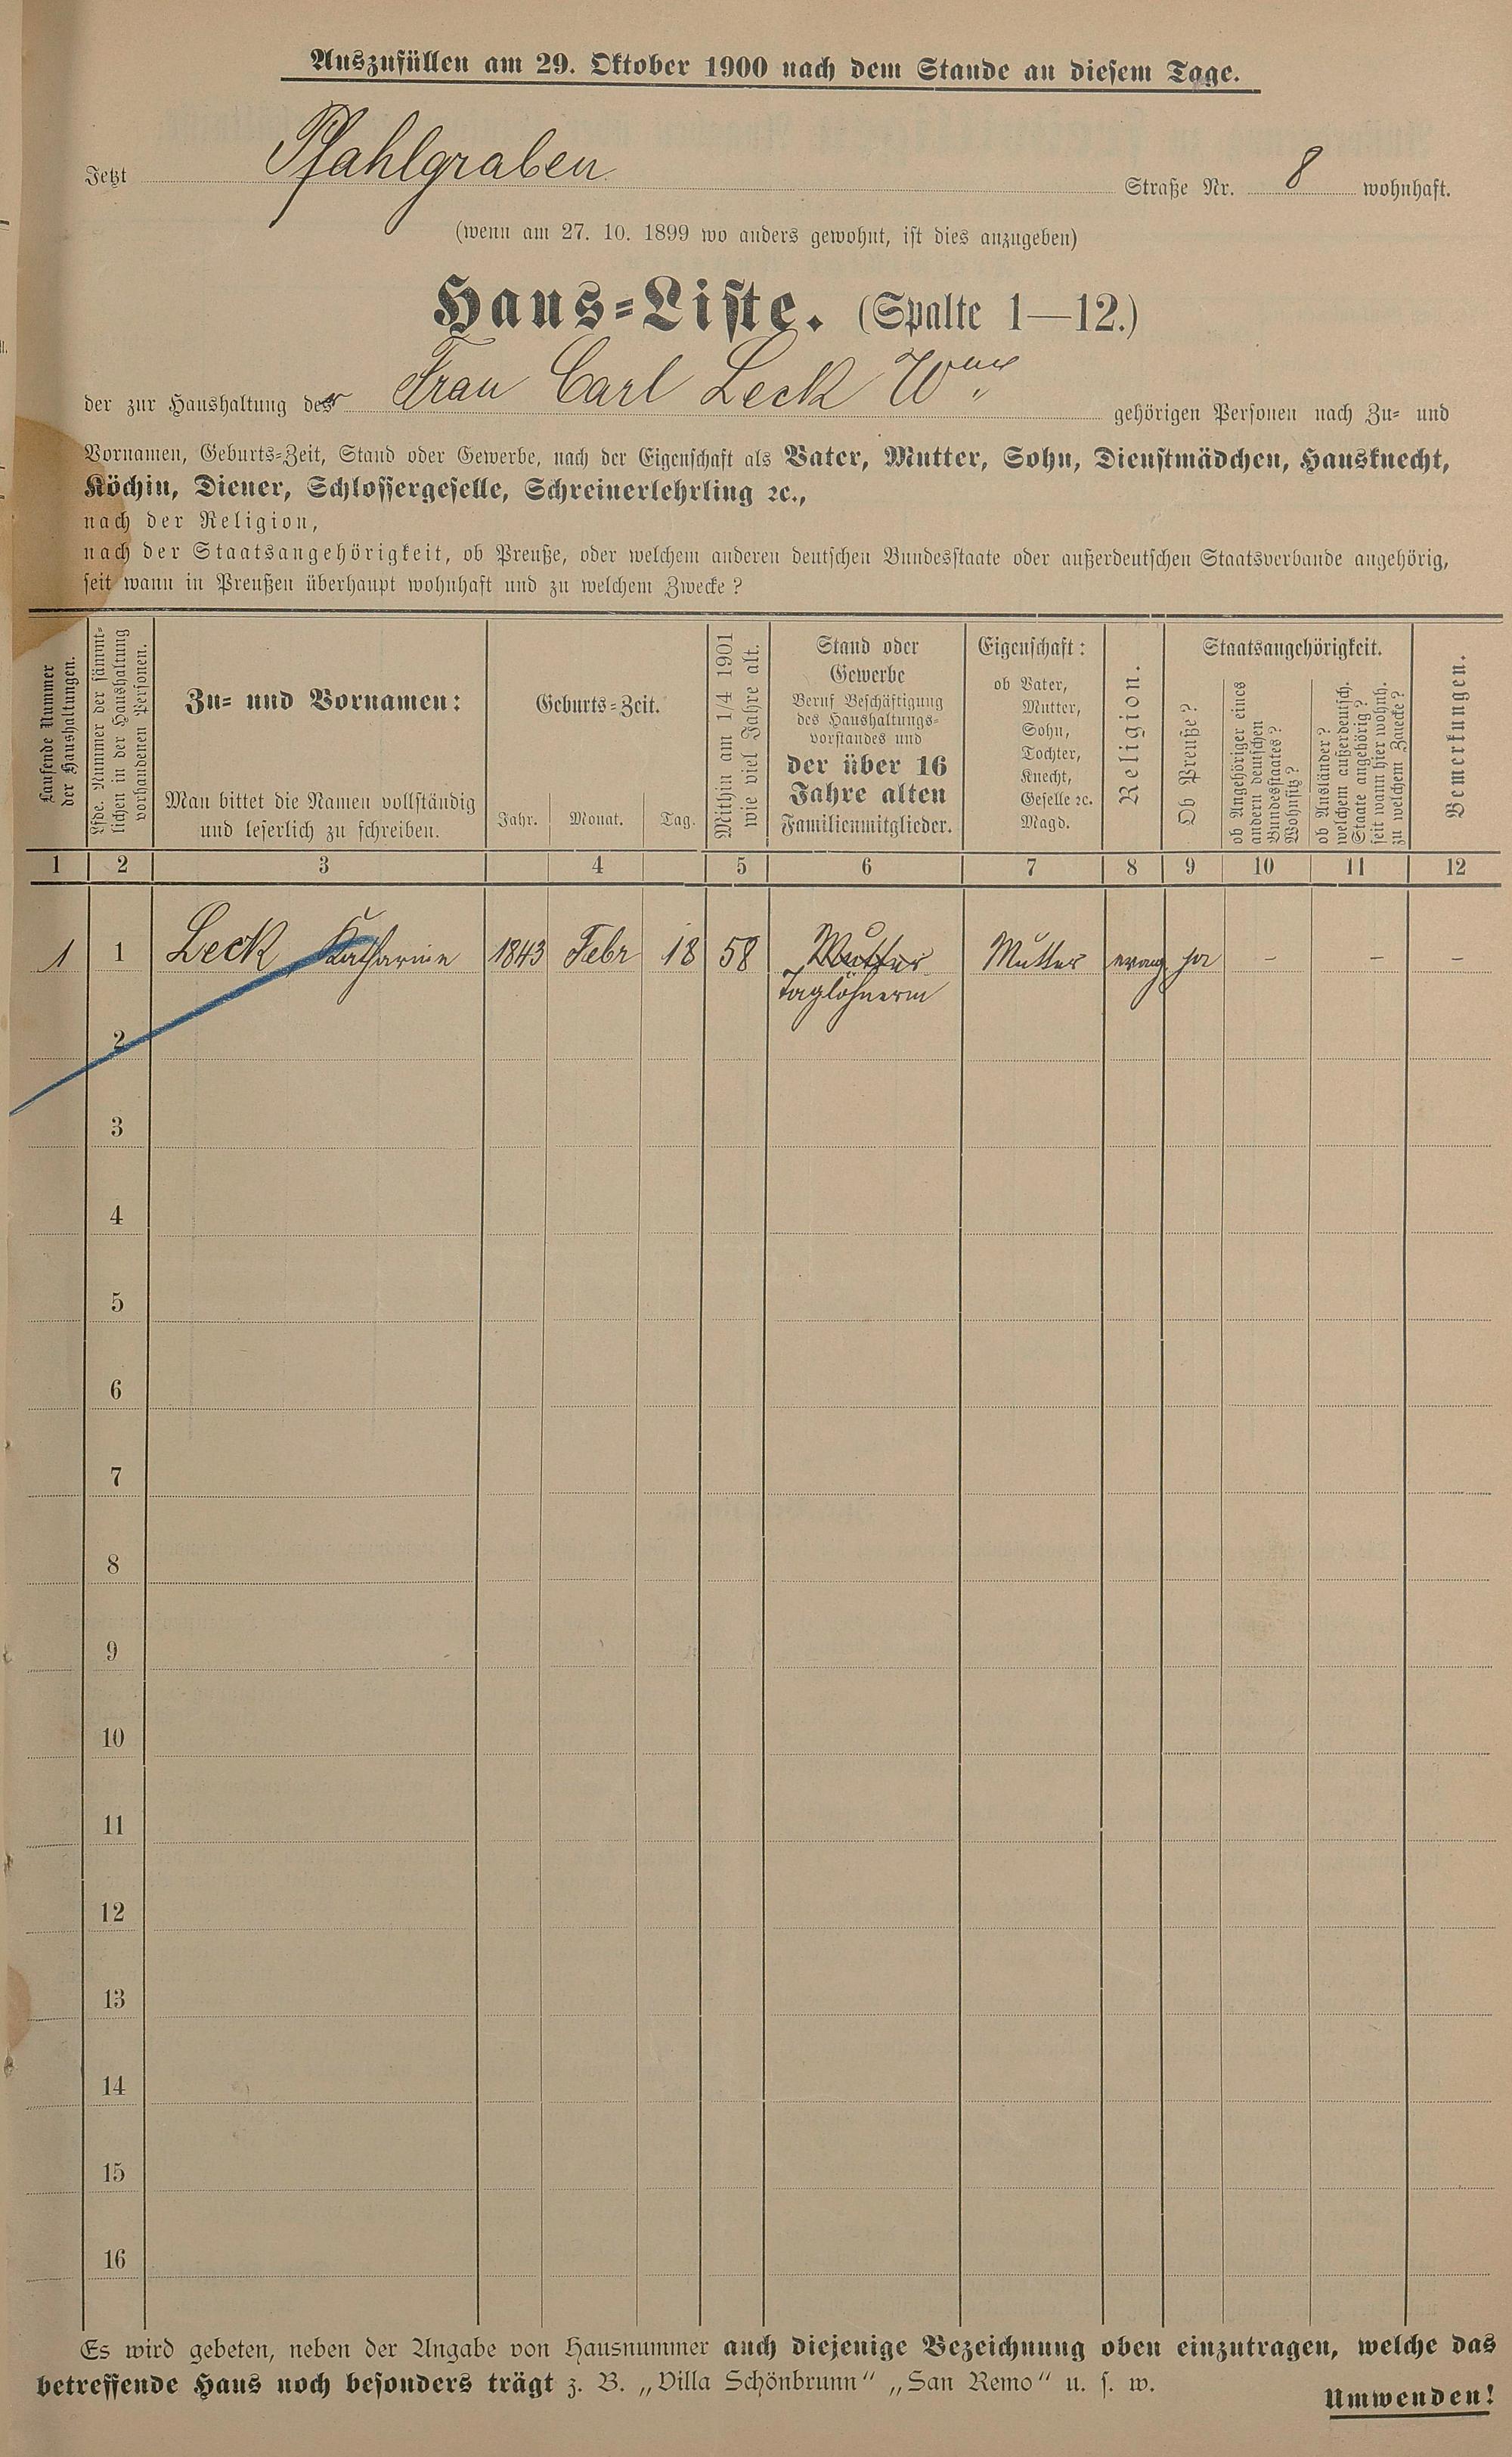 Auszufüllen am 29. Oktober 1900 nach dem Stande an diesem Tage.
Jetzt Pfahlgraben Straße Nr. 8 wohnhaft.
(wenn am 27. 10. 1899 wo anders gewohnt, ist dies anzugeben)
Haus-Liste. (Spalte 1—12.)
der zur Haushaltung der Frau Carl Leck Wwe gehörigen Personen nach Zu- und
Vornamen, Geburts-Zeit, Stand oder Gewerbe, nach der Eigenschaft als Vater, Mutter, Sohn, Dienstmädchen, Hausknecht,
Köchin, Diener, Schlossergeselle, Schreinerlehrling ꝛc.,
nach der Religion,
nach der Staatsangehörigkeit, ob Preuße, oder welchem anderen deutschen Bundesstaate oder außerdeutschen Staatsverbande angehörig,
seit wann in Preußen überhaupt wohnhaft und zu welchem Zwecke?
Laufende Nummer
der Haushaltungen.
Lfde. Nummer der sämmt-
lichen in der Haushaltung
vorhandenen Personen.
Zu- und Vornamen:
Man bittet die Namen vollständig
und leserlich zu schreiben.
Geburts-Zeit.
Jahr. Monat. Tag.
Mithin am 1/4 1901
wie viel Jahre alt.
Stand oder
Gewerbe
Beruf Beschäftigung
des Haushaltungs-
vorstandes und
der über 16
Jahre alten
Familienmitglieder.
Eigenschaft:
ob Vater,
Mutter,
Sohn,
Tochter,
Knecht,
Geselle ꝛc.
Magd.
Religion.
Staatsangehörigkeit.
Ob Preuße?
ob Angehöriger eines
andern deutschen
Bundesstaates?
Wohnsitz?
ob Ausländer?
welchem außerdeutsch.
Staate angehörig?
seit wann hier wohnh.
zu welchem Zwecke?
Bemerkungen.
1 2 3 4 5 6 7 8 9 10 11 12
1 1 Leck, Katharine 1843 Febr 18 58 Mutter Mutter evang ja - - -
Taglöhnerin
2
3
4
5
6
7
8
9
10
11
12
13
14
15
16
Es wird gebeten, neben der Angabe von Hausnummer auch diejenige Bezeichnung oben einzutragen, welche das
betreffende Haus noch besonders trägt z. B. „Villa Schönbrunn" „San Remo" u. s. w.
Umwenden!